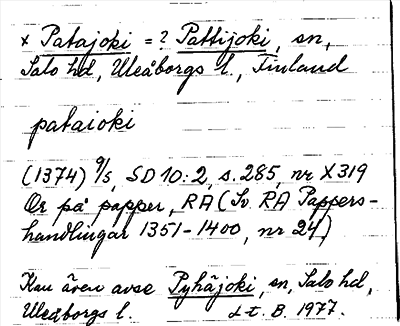 × Patajoki = ? Pattijoki, sn,
Salo hd, Uleåborgs l., Finland
pataioki
(1374) 9/5, SD 10:2, s. 285, nr X319
Or på papper, RA (Sv. RA Pappers-
handlingar 1351-1400, nr 24)
Kan även avse Pyhäjoki, sn, Salo hd,
Uleåborgs l. L t. B. 1977.